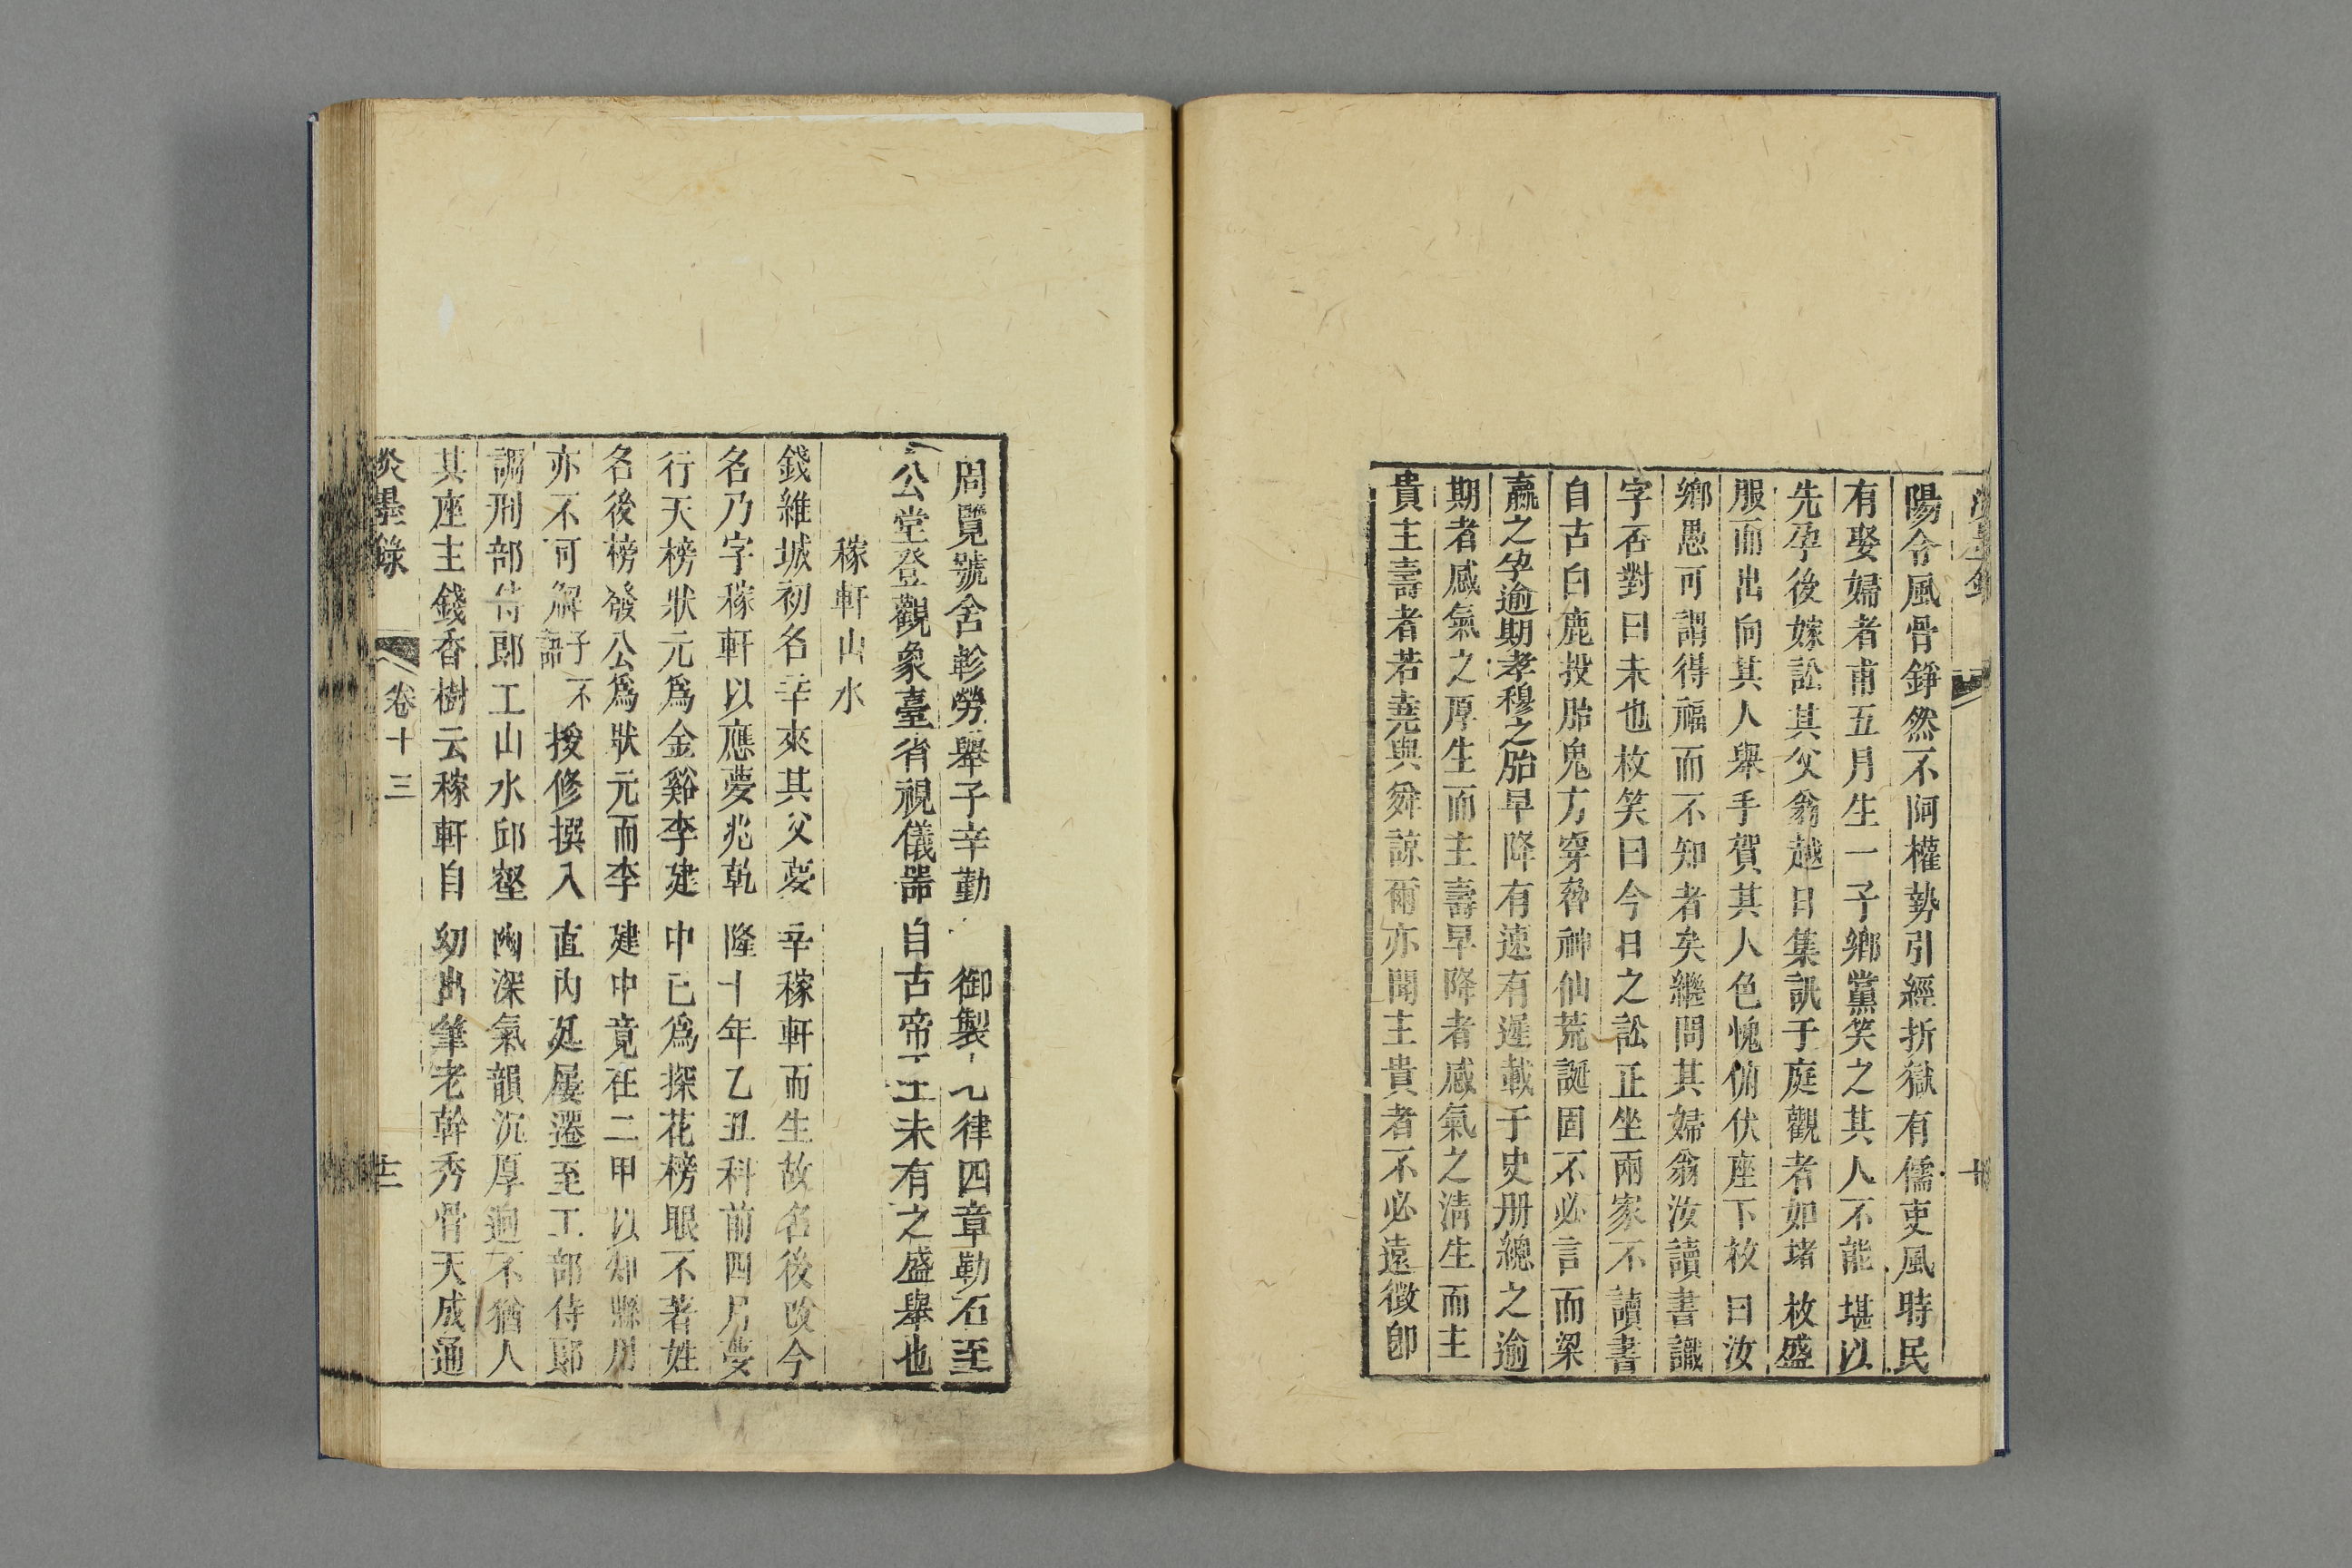 陽令風骨錚然不阿權勢引經折獄有儒吏風時民
有娶婦者甫五月生一子鄉黨笑之其人不能堪以
先孕後嫁訟其父翁越日集訊于庭觀者如堵枚盛
服而出向其人舉手賀其人色愧俯伏座下枚曰汝
鄉愚可謂得福而不知者矣繼問其婦翁汝讀書識
字否對曰未也枚笑曰今日之訟正坐兩家不讀書
自古白鹿投胎鬼方穿脅神仙荒誕固不必言而梁
嬴之孕逾期孝穆之胎早降有速有遲載于史册總之逾
期者感氣之厚生而主壽早降者感氣之清生而主
貴主壽者若堯與舜諒爾亦聞主貴者不必遠徵卽
周覽號舍軫勞舉子辛勤 御製 七律四章勒石至
公堂登觀象臺省視儀器自古帝王未有之盛舉也
稼軒山水
錢維城初名辛來其父夢辛稼軒而生故名後改今
名乃字稼軒以應夢兆乾隆十年乙丑科前四月夢
行天榜狀元爲金谿李建中已爲探花榜眼不著姓
名後榜發公爲狀元而李建中竟在二甲以知縣用
亦不可解子不語授修撰入直內廷屢遷至工部侍郎
調刑部侍郎工山水邱壑幽深氣韻沉厚迥不猶人
其座主錢香樹云稼軒自幼出筆老幹秀骨天成通
炎墨錄 卷十三